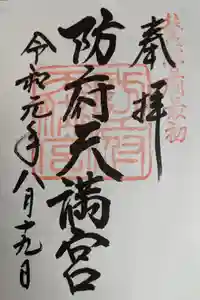 奉拝
防府天満宮
令和元年八月十九日